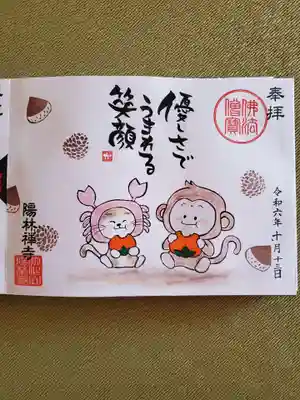 奉拝
佛法
僧寶
優しさで
うまれる
笑顔
令和六年十月十三日
陽林禅寺